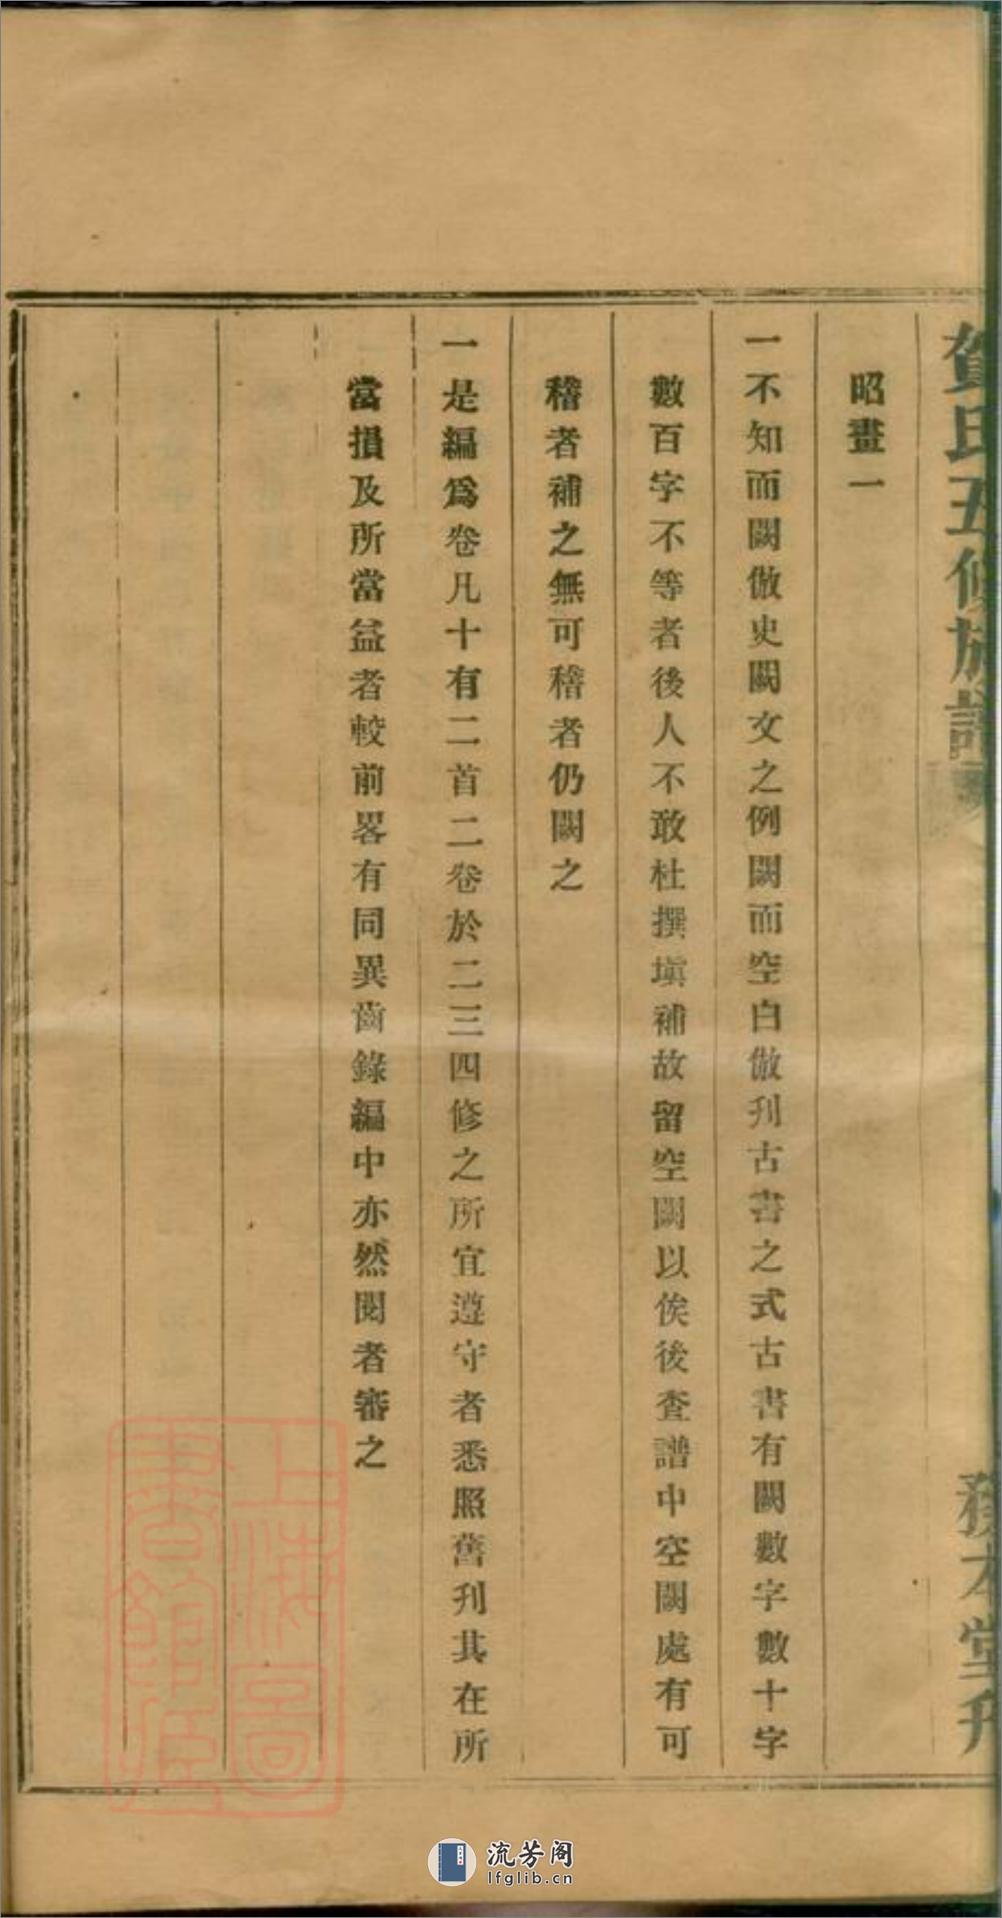 賀氏五修族譜
務本堂
昭畫一
一不知而闕倣史闕文之例闕而空白倣刋古書之式古書有闕數字數十字
數百字不等者後人不敢杜撰塡補故留空闕以俟後查譜中空闕處有可
稽者補之無可稽者仍闕之
一是編爲卷凡十有二首二卷於二三四修之所宜遵守者悉照舊刋其在所
當損及所當益者較前畧有同異齒錄編中亦然閱者審之
上海圖
書館藏
流芳阁
lfglib.cn